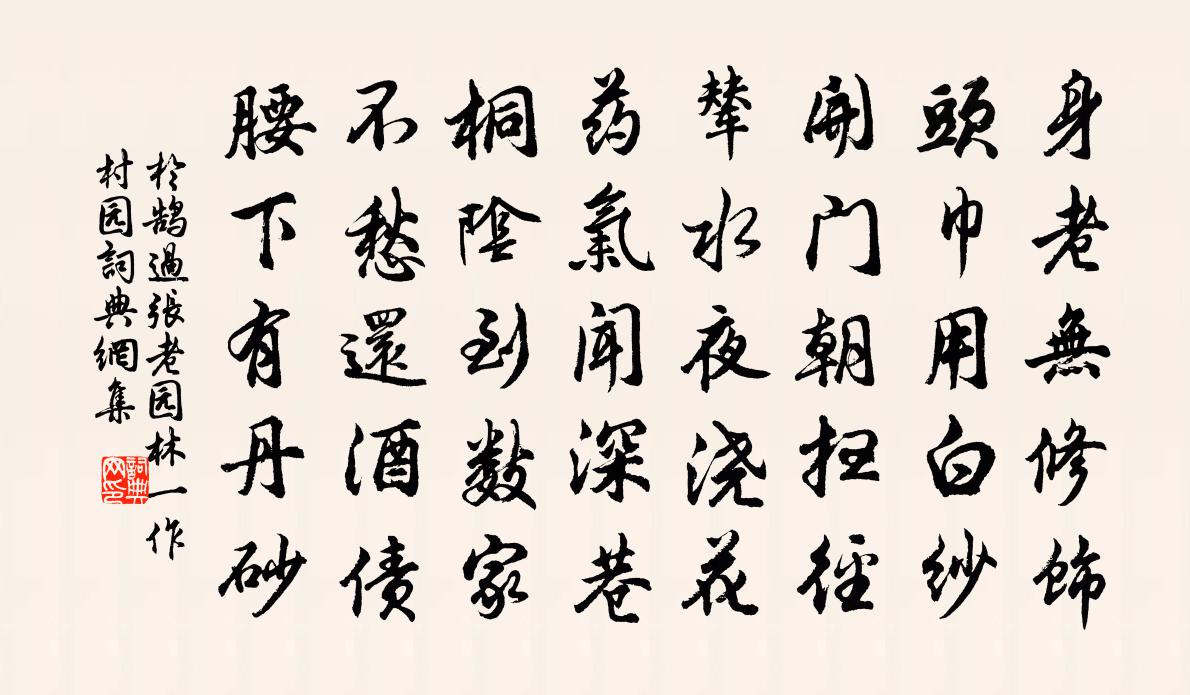 身老無修飾
頭巾用白紗
開门朝扫徑
輦水夜浇花
药氣闻深巷
桐陰到數家
不愁還酒债
腰下有丹砂
於鵠過張老园林一作
村园詞典網集
詞典
网印